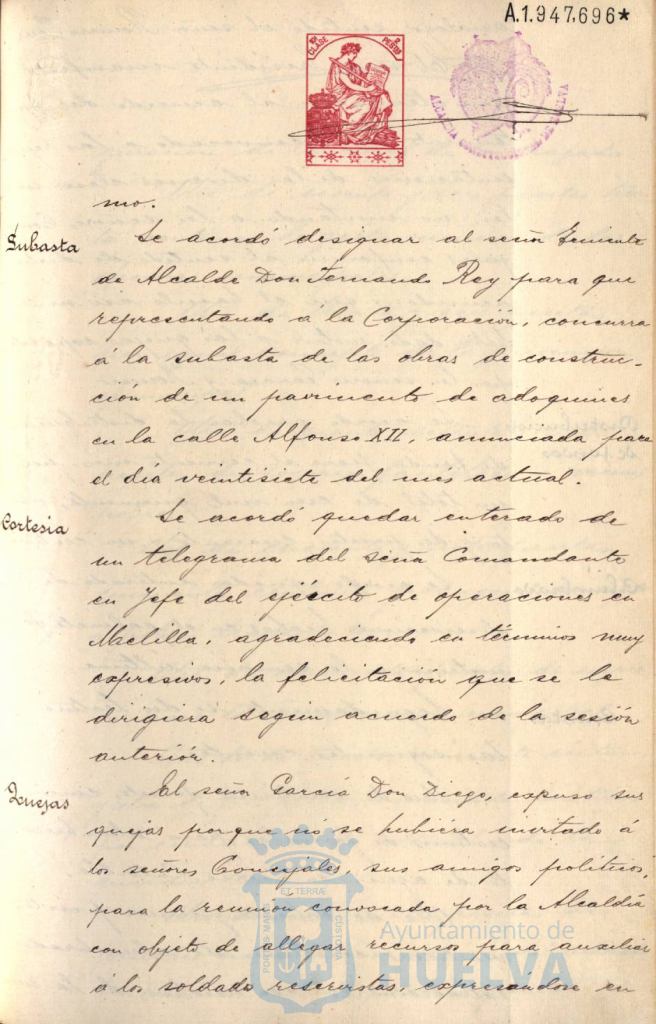 A.1.947.696*
10ª CLASE
2 PESETAS
ALCALDIA CONSTITUCIONAL DE HUELVA
mo.
Subasta
Se acordó designar al señor Teniente
de Alcalde Don Fernando Rey para que
representando á la Corporación, concurra
á la subasta de las obras de construc-
ción de un pavimento de adoquines
en la calle Alfonso XII, anunciada para
el día veintisiete del mes actual.
Cortesia
Se acordó quedar enterado de
un telegrama del señor Comandante
en Jefe del ejército de operaciones en
Melilla, agradeciendo en términos muy
expresivos, la felicitación que se le
dirigiera segun acuerdo de la sesión
anterior.
Quejas
El señor García Don Diego, expuso sus
quejas porque no se hubiera invitado á
los señores Concejales, sus amigos politicos,
para la reunion convocada por la Alcaldía
con objeto de allegar recursos para auxiliar
á los soldados reservistas, expresandose en
PORTUS MARIS ET TERRÆ CUSTODIA
Ayuntamiento de
HUELVA